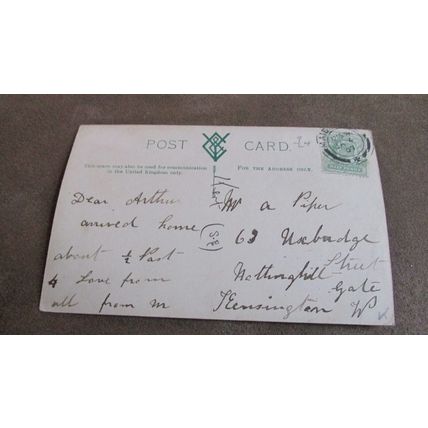 POST CARD.
This space may also be used for communication
in the United Kingdom only.
FOR THE ADDRESS ONLY.
HALF PENNY
Dear Arthur
arrived home
about ½ Past
4 Love from
all from m
Mr a Piper
63 Uxbridge
Street
Nottinghill
Gate
Kensington W